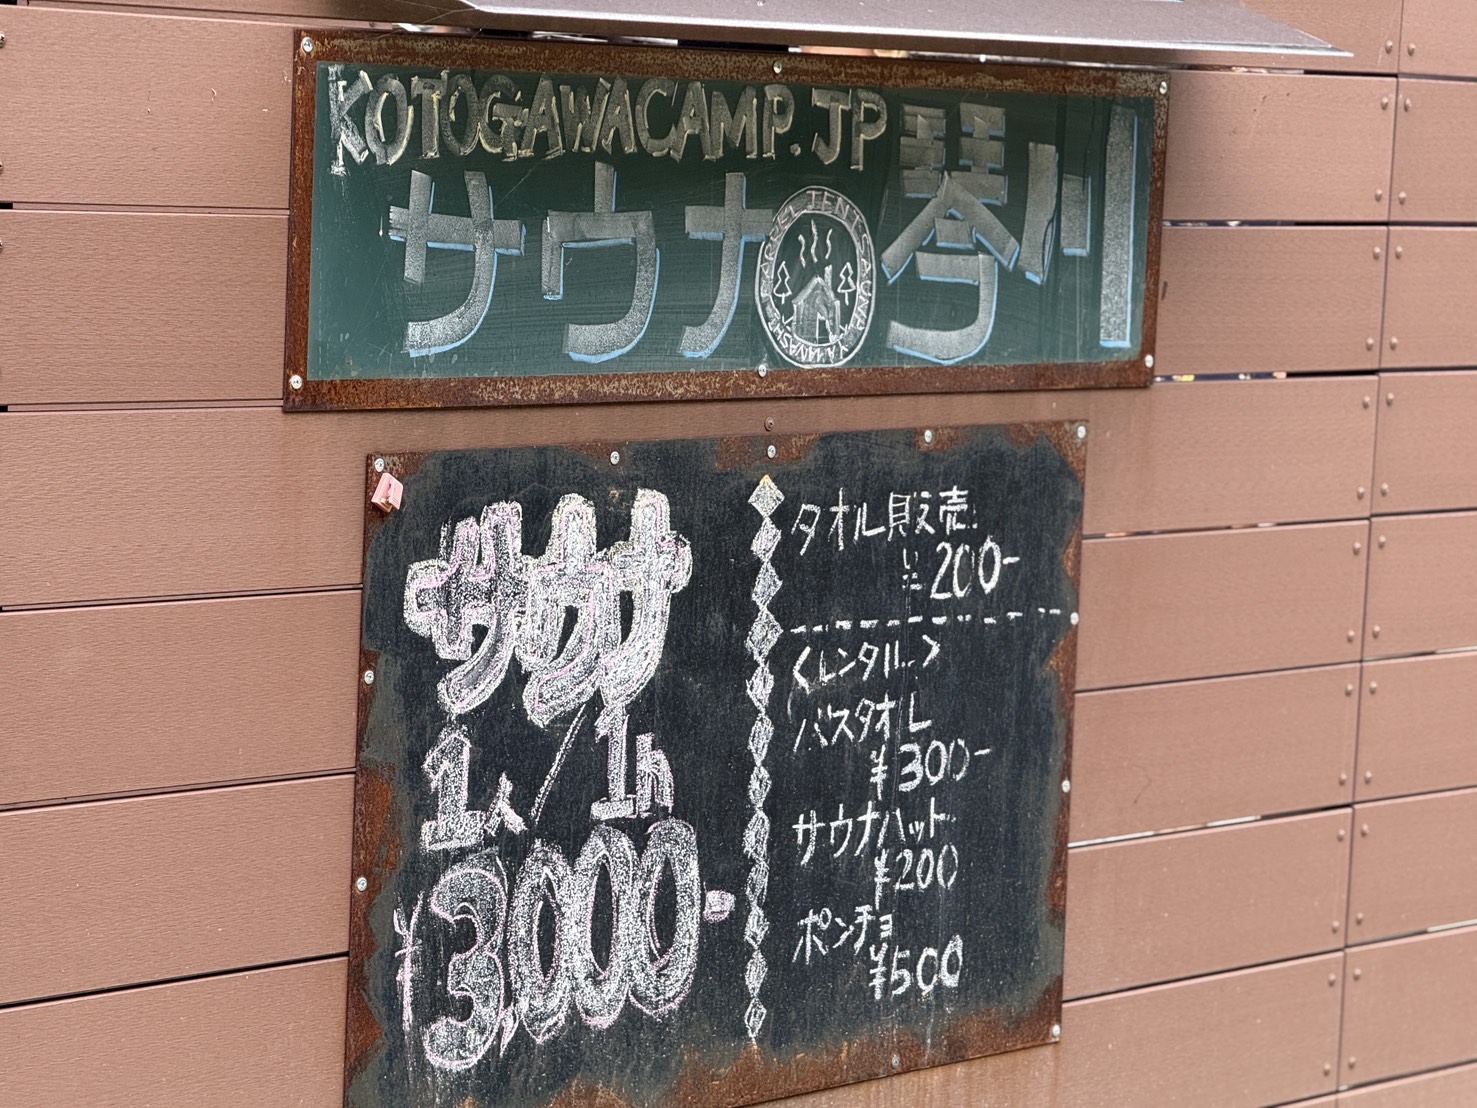 KOTOGAWACAMP.JP
サウナ
BARREL TENT SAUNA YAMANASHI
琴川
サウナ
1人/1h
¥3,000-
タオル販売
¥200-
<レンタル>
バスタオル
¥300-
サウナハット
¥200
ポンチョ
¥500